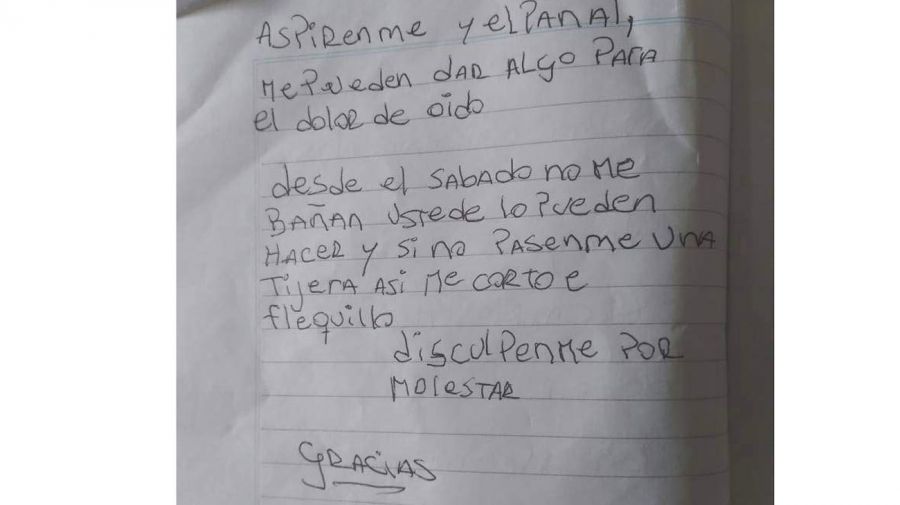 ASPiRenme y el PAnAl,
Me Pueden dAR ALgo PARA
el doloR de oido
desde el SABADO no Me
BAÑAn USTede lo Pueden
HACeR y Si no PASenme UnA
TijeRA ASi Me CoRTo e
flequillo
disculPenMe PoR
MolesTAR
gRACiAS